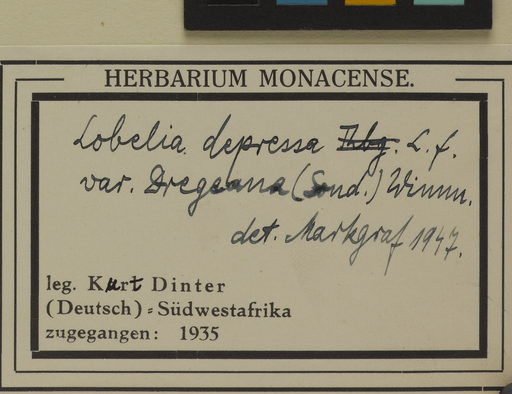 HERBARIUM MONACENSE.
Lobelia depressa Thbg. L. f.
var. Dregeana (Sond.) Wimm.
det. Markgraf 1947.
leg. Kurt Dinter
(Deutsch) = Südwestafrika
zugegangen: 1935